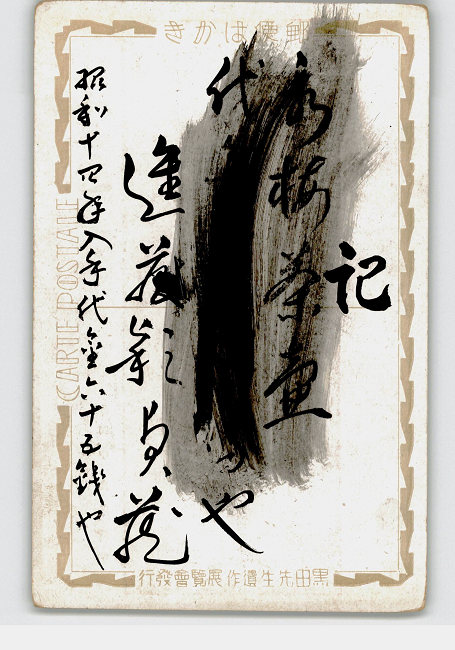 郵便はかき
記
茶壷
代 也
進 貞蔵
昭和十四年入手代金六十五銭也
CARTE POSTALE
黒田先生遺作展覽會發行